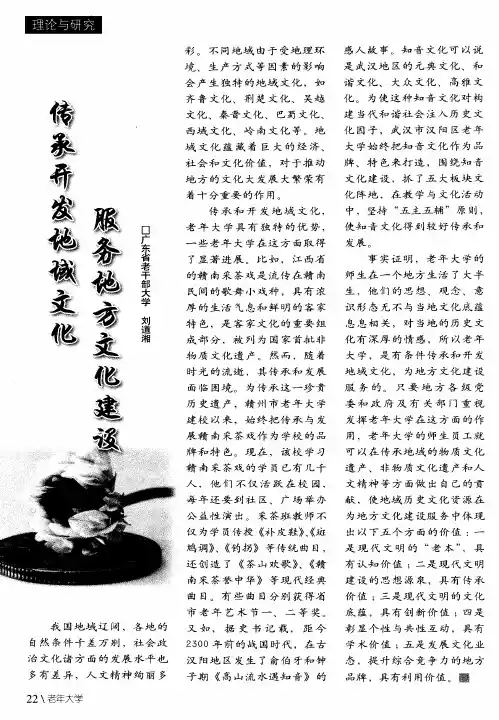 理论与研究
传承开发地域文化
服务地方文化建设
□广东省老干部大学 刘道湘
我国地域辽阔、各地的
自然条件千差万别，社会政
治文化诸方面的发展水平也
多有差异，人文精神绚丽多
彩。不同地域由于受地理环
境、生产方式等因素的影响
会产生独特的地域文化，如
齐鲁文化、荆楚文化、吴越
文化、秦晋文化、巴蜀文化、
西域文化、岭南文化等。地
域文化蕴藏着巨大的经济、
社会和文化价值，对于推动
地方的文化大发展大繁荣有
着十分重要的作用。
传承和开发地域文化，
老年大学具有独特的优势，
一些老年大学在这方面取得
了显著进展。比如，江西省
的赣南采茶戏是流传在赣南
民间的歌舞小戏种，具有浓
厚的生活气息和鲜明的客家
特色，是客家文化的重要组
成部分，被列为国家首批非
物质文化遗产。然而，随着
时光的流逝，其传承和发展
面临困境。为传承这一珍贵
历史遗产，赣州市老年大学
建校以来，始终把传承与发
展赣南采茶戏作为学校的品
牌和特色。现在，该校学习
赣南采茶戏的学员已有几千
人，他们不仅活跃在校园，
每年还要到社区、广场举办
公益性演出。采茶班教师不
仅为学员传授《补皮鞋》、《斑
鸠调》、《钓拐》等传统曲目，
还创造了《茶山欢歌》、《赣
南采茶誉中华》等现代经典
曲目。有些曲目分别获得省
市老年艺术节一、二等奖。
又如，据史书记载，距今
2300年前的战国时代，在古
汉阳地区发生了俞伯牙和钟
子期《高山流水遇知音》的
感人故事。知音文化可以说
是武汉地区的元典文化、和
谐文化、大众文化、高雅文
化。为使这种知音文化对构
建当代和谐社会注入历史文
化因子，武汉市汉阳区老年
大学始终把知音文化作为品
牌、特色来打造，围绕知音
文化建设，抓了五大板块文
化阵地，在教学与文化活动
中，坚持“五主五辅”原则，
使知音文化得到较好传承和
发展。
事实证明，老年大学的
师生在一个地方生活了大半
生，他们的思想、观念、意
识形态无不与当地文化底蕴
息息相关，对当地的历史文
化有深厚的情感，所以老年
大学，是有条件传承和开发
地域文化，为地方文化建设
服务的。只要地方各级党
委和政府及有关部门重视
发挥老年大学在这方面的作
用，老年大学的师生员工就
可以在传承地域的物质文化
遗产、非物质文化遗产和人
文精神等方面做出自己的贡
献，使地域历史文化资源在
为地方文化建设服务中体现
出以下五个方面的价值：一
是现代文明的“老本”，具
有认知价值；二是现代文明
建设的思想源泉，具有传承
价值；三是现代文明的文化
底蕴，具有创新价值；四是
彰显个性与共性互动，具有
学术价值；五是发展文化业
态，提升综合竞争力的地方
品牌，具有利用价值。
22\老年大学